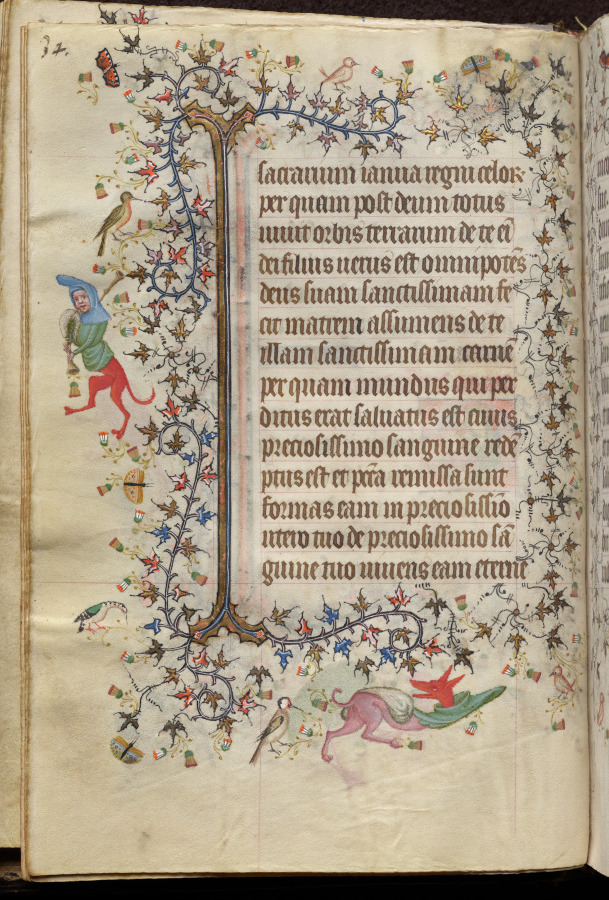 32.
sacrarium ianua regni celoꝝ
per quam post deum totus
uiuit orbis terrarum de te ei̅
dei filius uerus est omnipote̅s
deus suam sanctissimam fe
cit matrem assumens de te
illam sanctissimam carne̅
per quam mundus qui per
ditus erat saluatus est cuius
preciosissimo sanguine rede
ptus est et pc̅ta remissa sunt
formas eam in preciosissi̅o
utero tuo de preciosissimo sa̅
guine tuo uiuens eam eterne